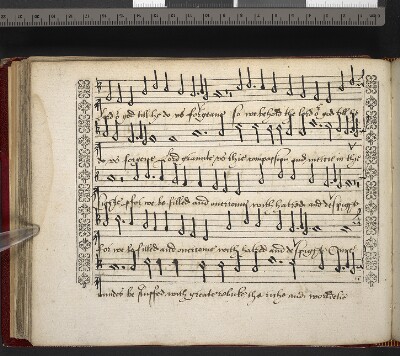 god till he do us forgeave so we behold the lord our god till he
do us forgeve Lord graunte us thie compassyon and mercie in this
we be filled and overcome with hatred and despight
for we be filled and overcome with hatred and despight Our
mindes be stuffed with greate rebuke the riche and worldelie